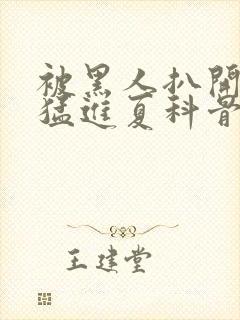 被黑人扒開
猛進夏科普
王建堂